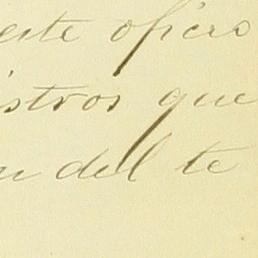 este oficio
istros que
n del te